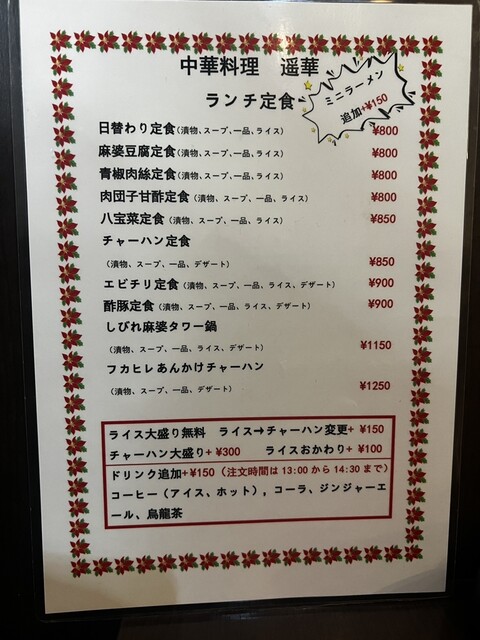 中華料理　遥華
ランチ定食
ミニラーメン
追加+¥150
日替わり定食(漬物、スープ、一品、ライス) ¥800
麻婆豆腐定食(漬物、スープ、一品、ライス) ¥800
青椒肉絲定食(漬物、スープ、一品、ライス) ¥800
肉団子甘酢定食(漬物、スープ、一品、ライス) ¥800
八宝菜定食(漬物、スープ、一品、ライス) ¥850
チャーハン定食
(漬物、スープ、一品、デザート) ¥850
エビチリ定食(漬物、スープ、一品、ライス、デザート) ¥900
酢豚定食(漬物、スープ、一品、ライス、デザート) ¥900
しびれ麻婆タワー鍋
(漬物、スープ、一品、ライス、デザート) ¥1150
フカヒレあんかけチャーハン
(漬物、スープ、一品、デザート) ¥1250
ライス大盛り無料　ライス→チャーハン変更+ ¥150
チャーハン大盛り+ ¥300　ライスおかわり+ ¥100
ドリンク追加+¥150（注文時間は13:00から14:30まで）
コーヒー（アイス、ホット）, コーラ、ジンジャーエ
ール、烏龍茶